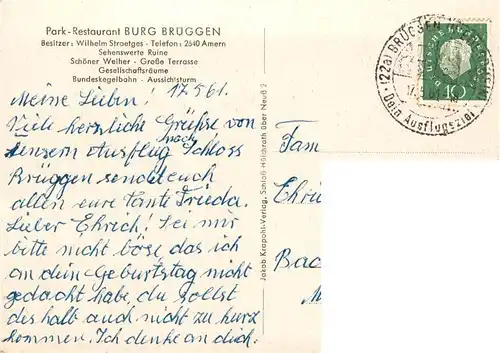 Park-Restaurant BURG BRÜGGEN
Besitzer: Wilhelm Straetges - Telefon: 2640 Amern
Sehenswerte Ruine
Schöner Weiher - Große Terrasse
Gesellschaftsräume
Bundeskegelbahn - Aussichtsturm
Meine Lieben! 17.5.61.
Viele herzlich Grühse von
unsern Ausflug nach Schloss
Brüggen sendet euch
allen eure Tante Frieda.
Lieber Ehrich! Sei mir
bitte nicht böse das ich
an dein Geburtstag nicht
gedacht habe, du sollst
deshalb auch nicht zu kurz
kommen. Ich denke an dich.
Jakob Krapohl-Verlag, Schloß Hülchrath über Neuß 2
(22a) BRÜGGEN
Dein Ausflugsziel
10
Fam
Ehrü
Bac